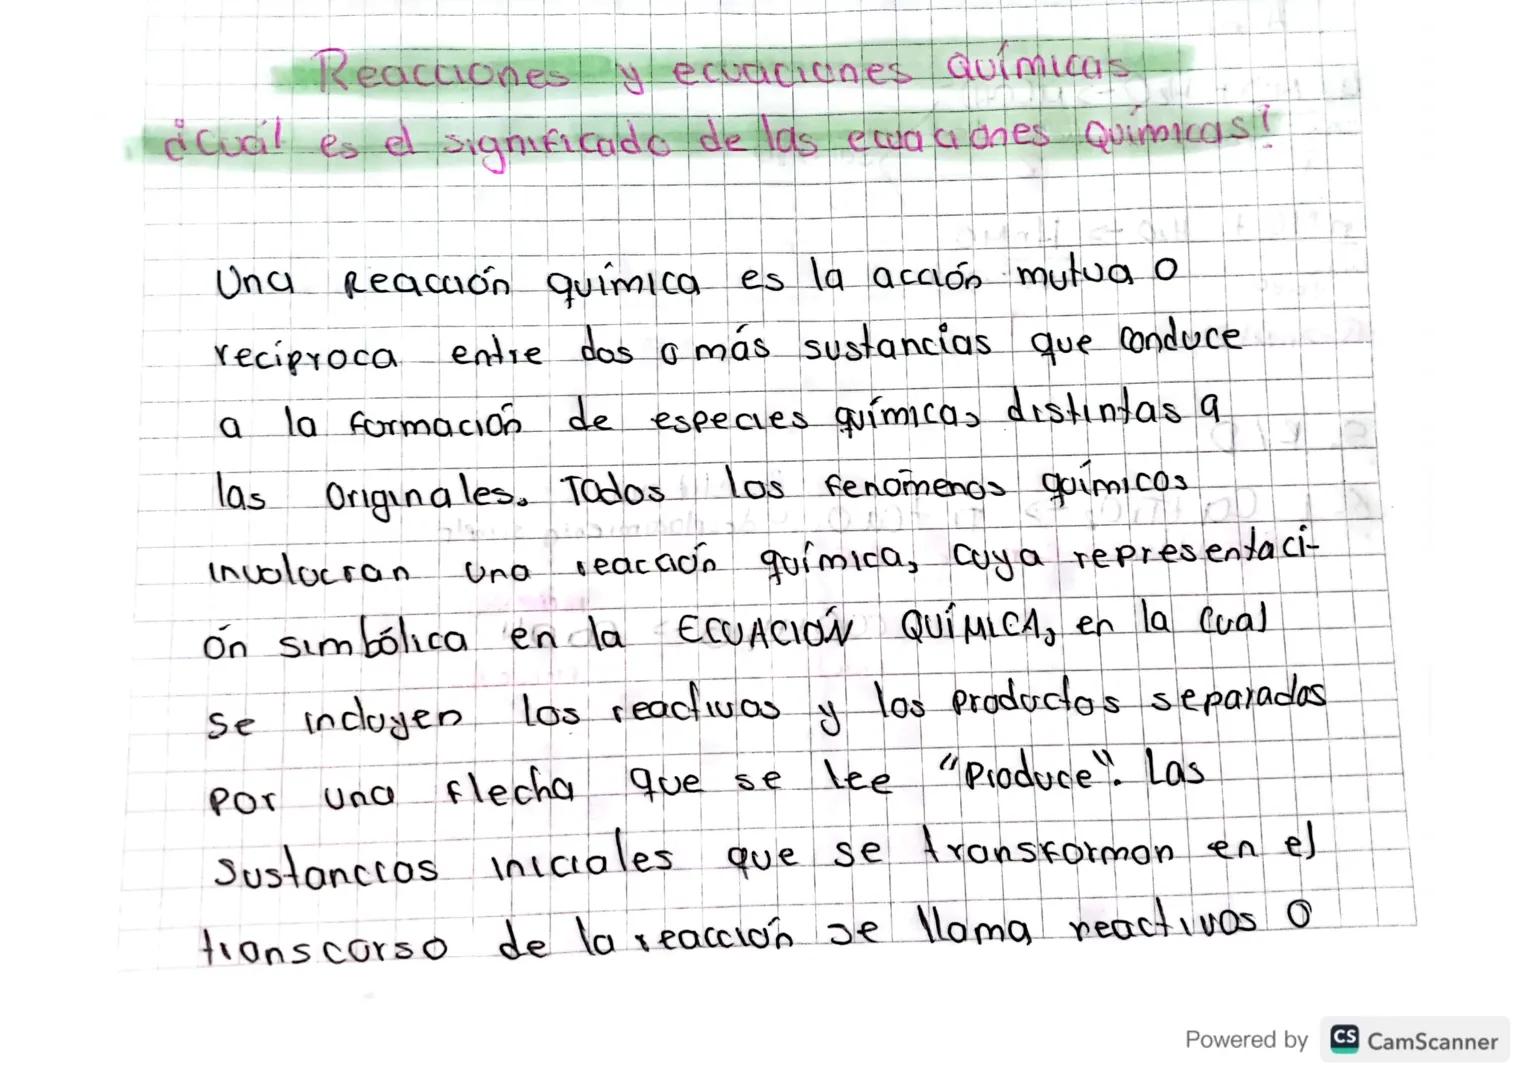 Reacciones y ecuaciones químicas
¿Cuál es el significado de las ecuaciones Químicas?
Una Reacción química es la acción mutua o
recíproca entre dos o más sustancias que conduce
a la formación de especies químicas distintas a
las Originales. Todos los fenómenos químicos
involucran una reacción química, cuya representaci-
ón simbólica en la ECUACIÓN QUÍMICA, en la cual
se incluyen los reactivos y los productos separados
por una flecha que se lee "Produce". Las
Sustancias iniciales que se transforman en el
transcurso de la reacción se llama reactivos o
Powered by CS CamScanner